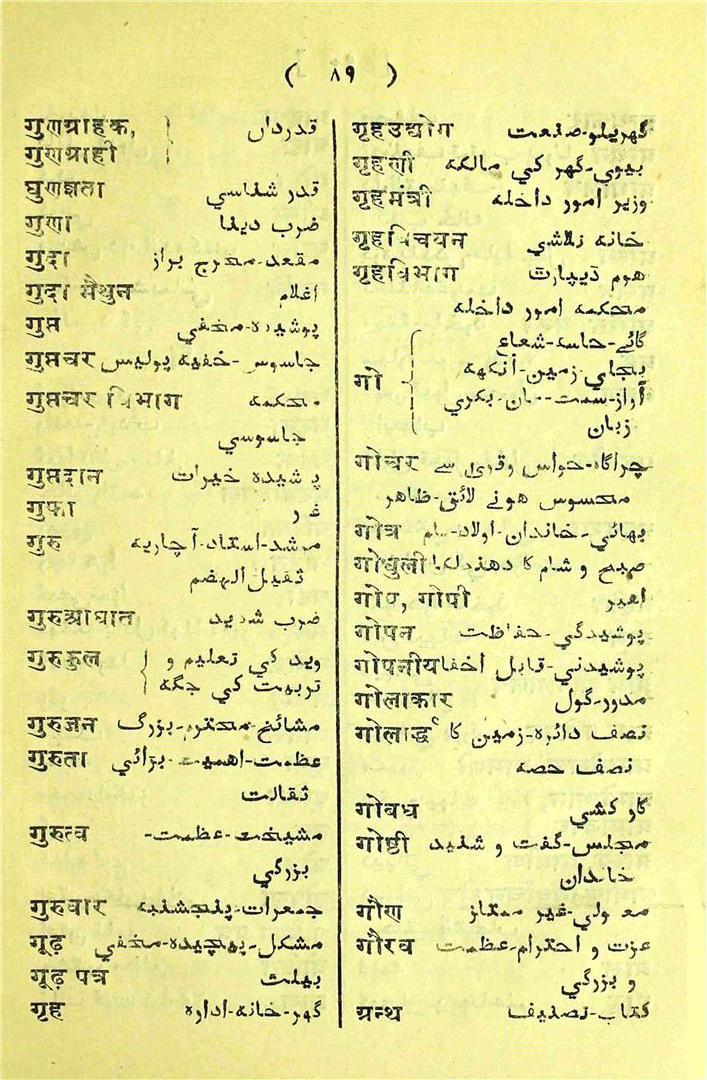 ( ۸۹ )
गुणग्राहक, قدرداں
गुणग्राही
घुणज्ञता قدر شناسي
गुणा ضرب دینا
गुदा مقعد-مخرج براز
गुदा मैथुन اغلام
गुप्त پوشیدہ-مخفي
गुप्तचर جاسوس-خفیہ پولیس
गुप्तचर विभाग محکمہ
جاسوسي
गुप्तदान پوشیدہ خیرات
गुफा غار
गुरु مرشد-استاد-آچاریہ
ثقیل الہضم
गुरुआघात ضرب شدید
गुरुकुल وید کي تعلیم و
تربیت کي جگہ
गुरुजन مشائخ-محترم-بزرگ
गुरुता عظمت-اهمیت-بڑائي
ثقالت
गुरुत्व مشیخت-عظمت-
بزرگي
गुरुवार جمعرات-پنجشنبہ
गूढ़ مشکل-پیچیدہ-مخفي
गूढ़ पत्र بیلٹ
गृह گھر-خانہ-ادارہ
गृहउद्योग گھریلو-صنعت
गृहणी بیوي-گھر کي مالکہ
गृहमंत्री وزیر امور داخلہ
गृहविचयन خانہ تلاشي
गृहविभाग هوم ڈیپارٹ
محکمہ امور داخلہ
گائے-حاسہ-شعاع
गो بجلي-زمین-آنکھ
آواز-سمت-ماں-بکري
زبان
गोचर چراگاہ-حواس و قوی سے
محسوس هونے لائق-ظاهر
गोत्र بھائي-خاندان-اولاد-نام
गोधुली صبح و شام کا دھندلکا
गोप, गोपी اهیر
गोपन پوشیدگي-حفاظت
गोपनीय پوشیدني-قابل اخفا
गोलाकार مدور-گول
गोलार्द्ध نصف دائرہ-زمین کا
نصف حصہ
गोबध گاو کشي
गोष्ठी مجلس-گفت و شنید
خاندان
गौण معمولي-غیر ممتاز
गौरव عزت و احترام-عظمت
و بزرگي
ग्रन्थ کتاب-تصنیف